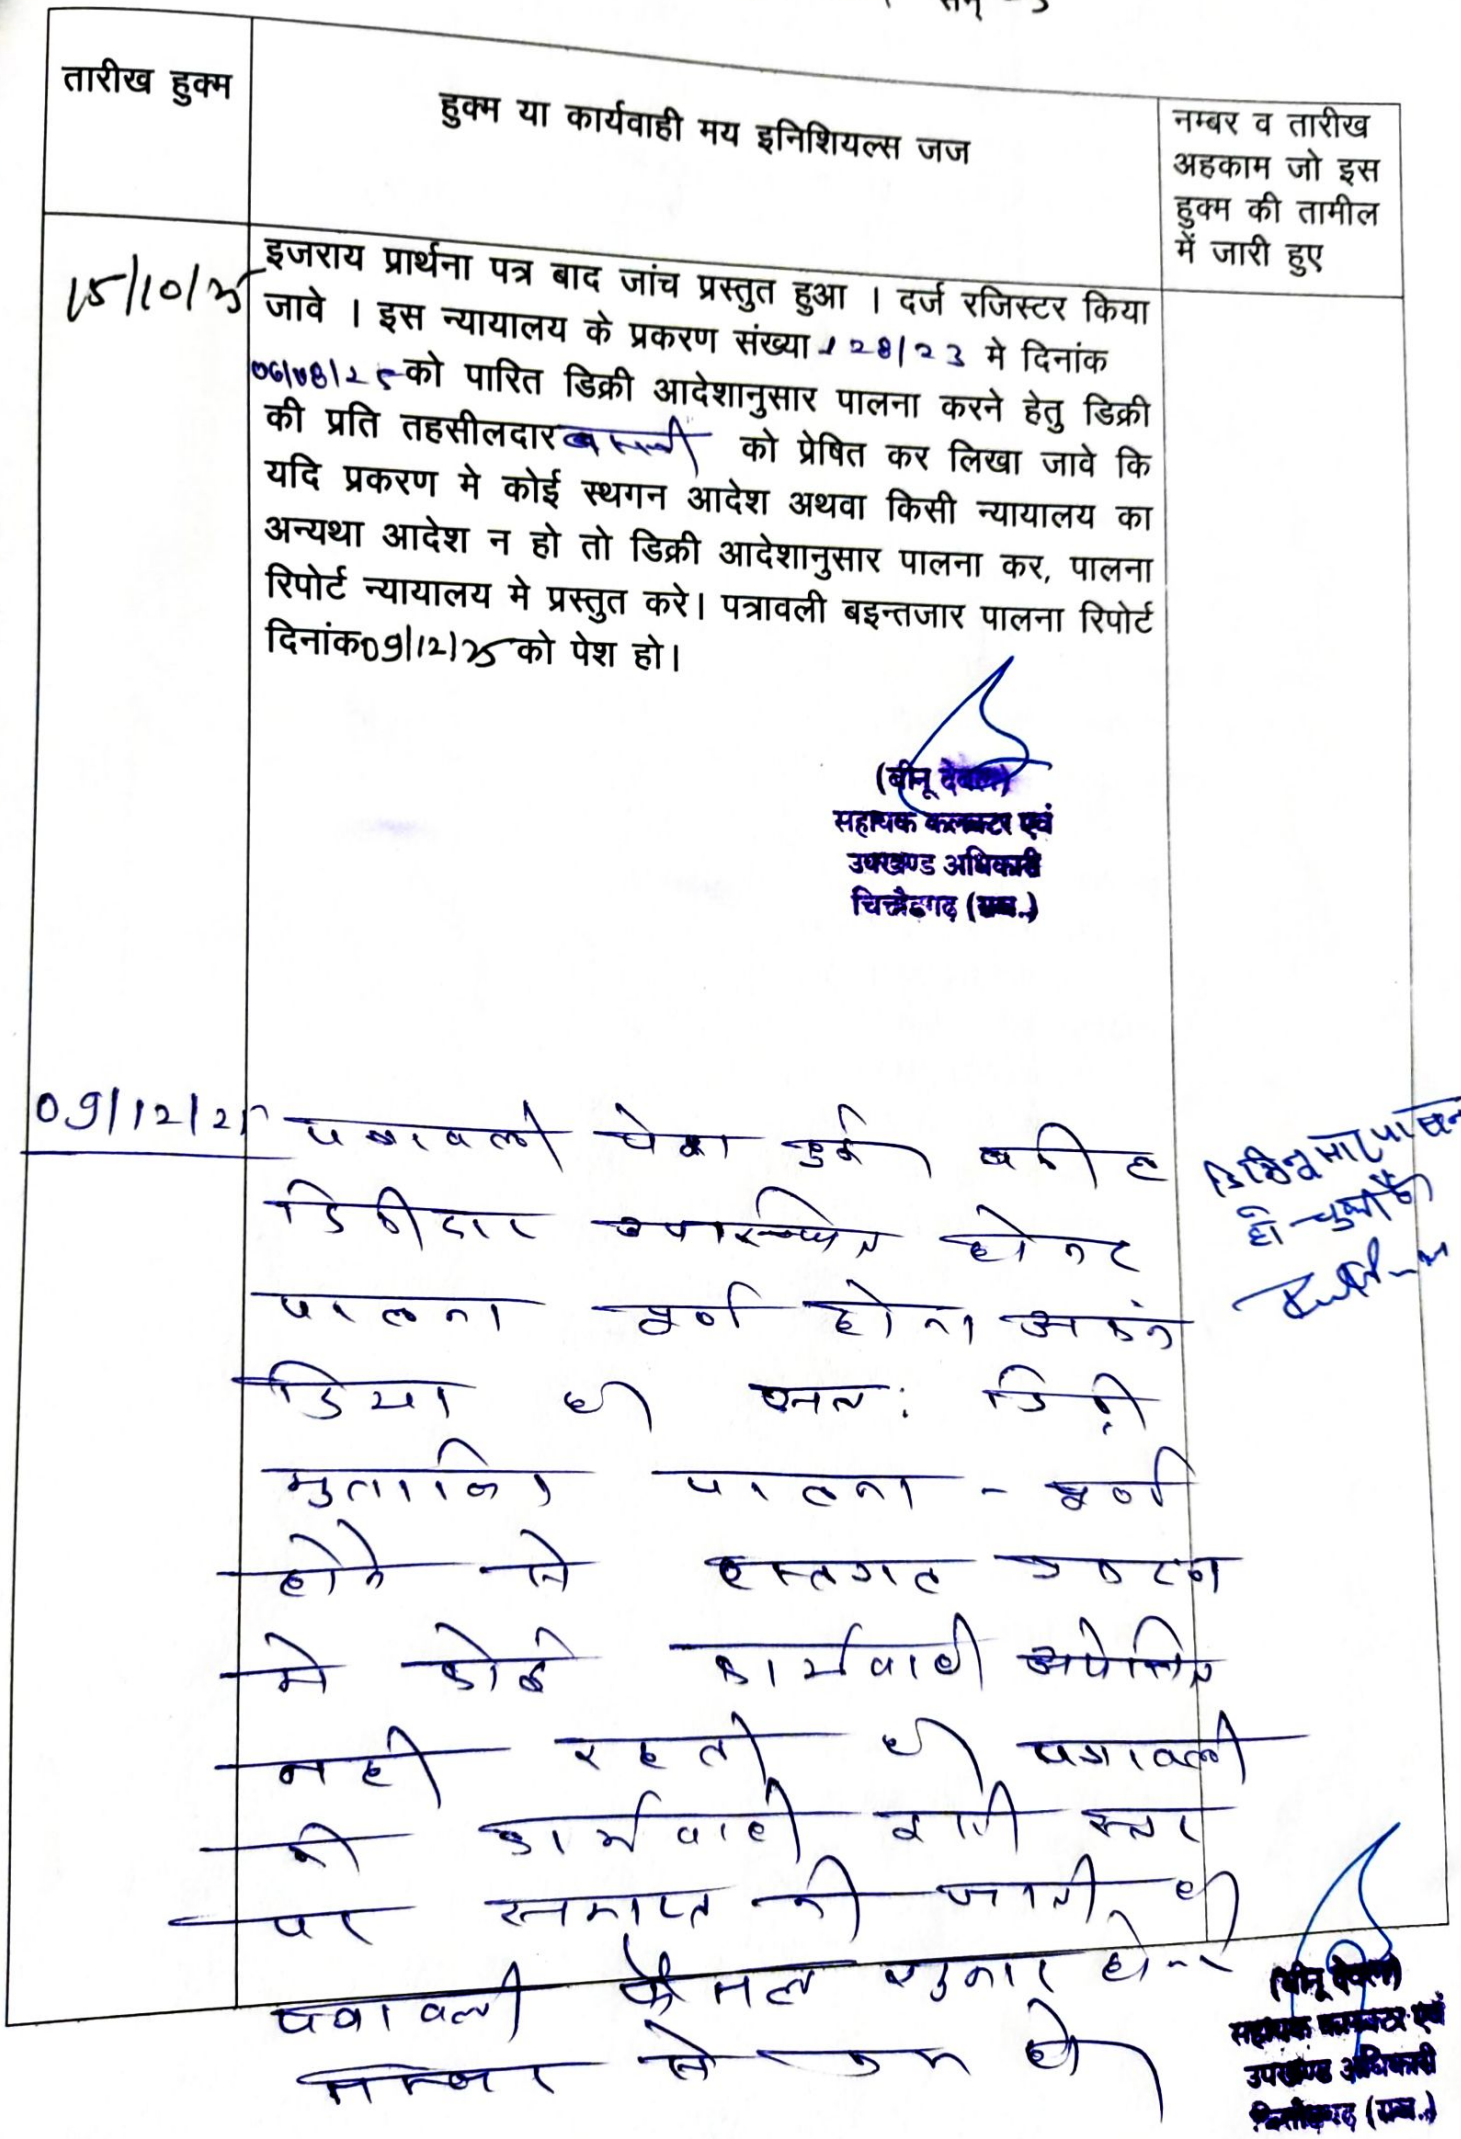 तारीख हुक्म
हुक्म या कार्यवाही मय इनिशियल्स जज
नम्बर व तारीख
अहकाम जो इस
हुक्म की तामील
में जारी हुए
15/10/25
इजराय प्रार्थना पत्र बाद जांच प्रस्तुत हुआ । दर्ज रजिस्टर किया
जावे । इस न्यायालय के प्रकरण संख्या 128/23 मे दिनांक
06/08/25 को पारित डिक्री आदेशानुसार पालना करने हेतु डिक्री
की प्रति तहसीलदार को प्रेषित कर लिखा जावे कि
यदि प्रकरण मे कोई स्थगन आदेश अथवा किसी न्यायालय का
अन्यथा आदेश न हो तो डिक्री आदेशानुसार पालना कर, पालना
रिपोर्ट न्यायालय मे प्रस्तुत करे। पत्रावली बइन्तजार पालना रिपोर्ट
दिनांक 09/12/25 को पेश हो।
(बीनू देवल)
सहायक कलक्टर एवं
उपखण्ड अधिकारी
चित्तौड़गढ़ (राज.)
09/12/25
पत्रावली पेश हुई वकील
डिक्रीदार उपस्थित होकर
पालना पूर्ण होना
किया है अतः डिक्री
मुताबिक पालना पूर्ण
होने से हस्तगत प्रकरण
मे कोई कार्यवाही अपेक्षित
नही रहती है पत्रावली
की कार्यवाही इसी स्तर
पर समाप्त की जाती है
पत्रावली फैसल शुमार होकर
नम्बर से कम हो
पालना
हो चुकी है
(बीनू देवल)
सहायक कलक्टर एवं
उपखण्ड अधिकारी
चित्तौड़गढ़ (राज.)